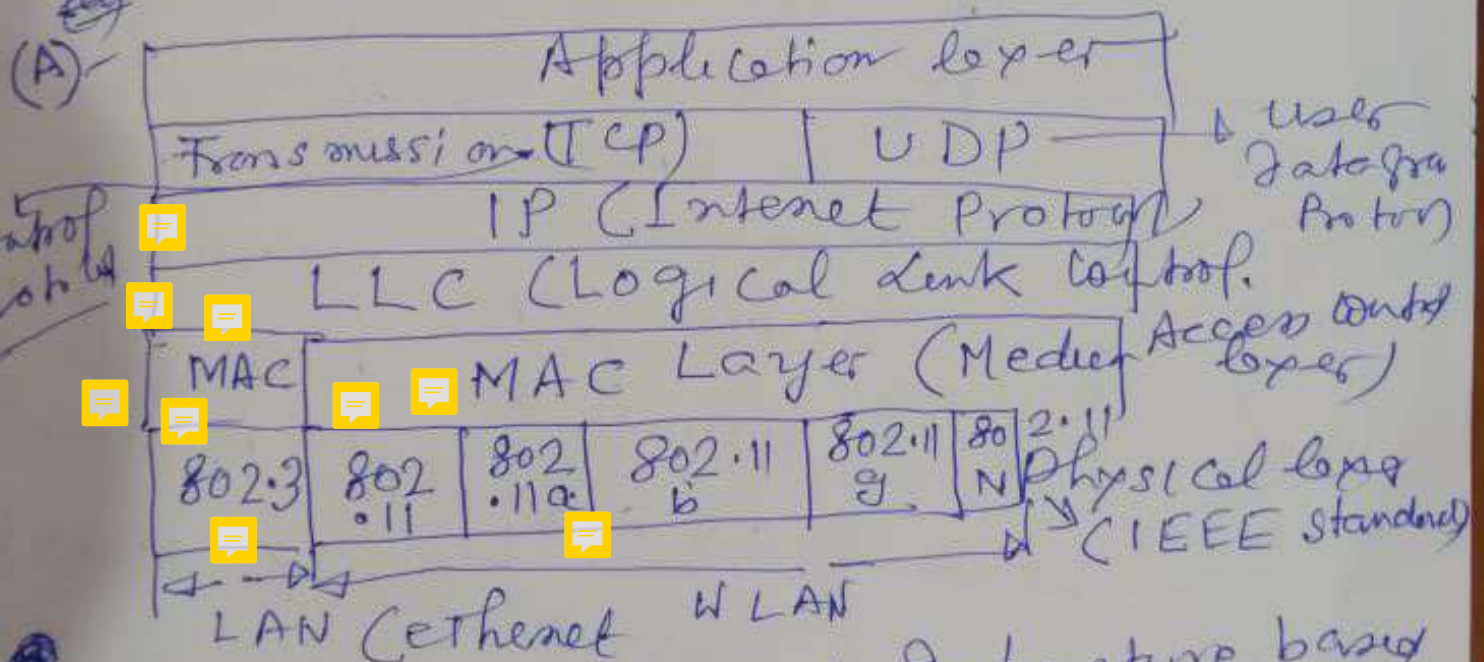 (A)-
Application layer
Transmission (TCP) | UDP → User
Datagra
IP (Intenet Protocol)
LLC (Logical Link Control.
MAC
MAC Layer (Media Access Control
layer)
802.3
802
.11
802
.11a
802.11
b
802.11
g
802.11
N
Physical
(IEEE Standards)
LAN (eThenet
WLAN
based